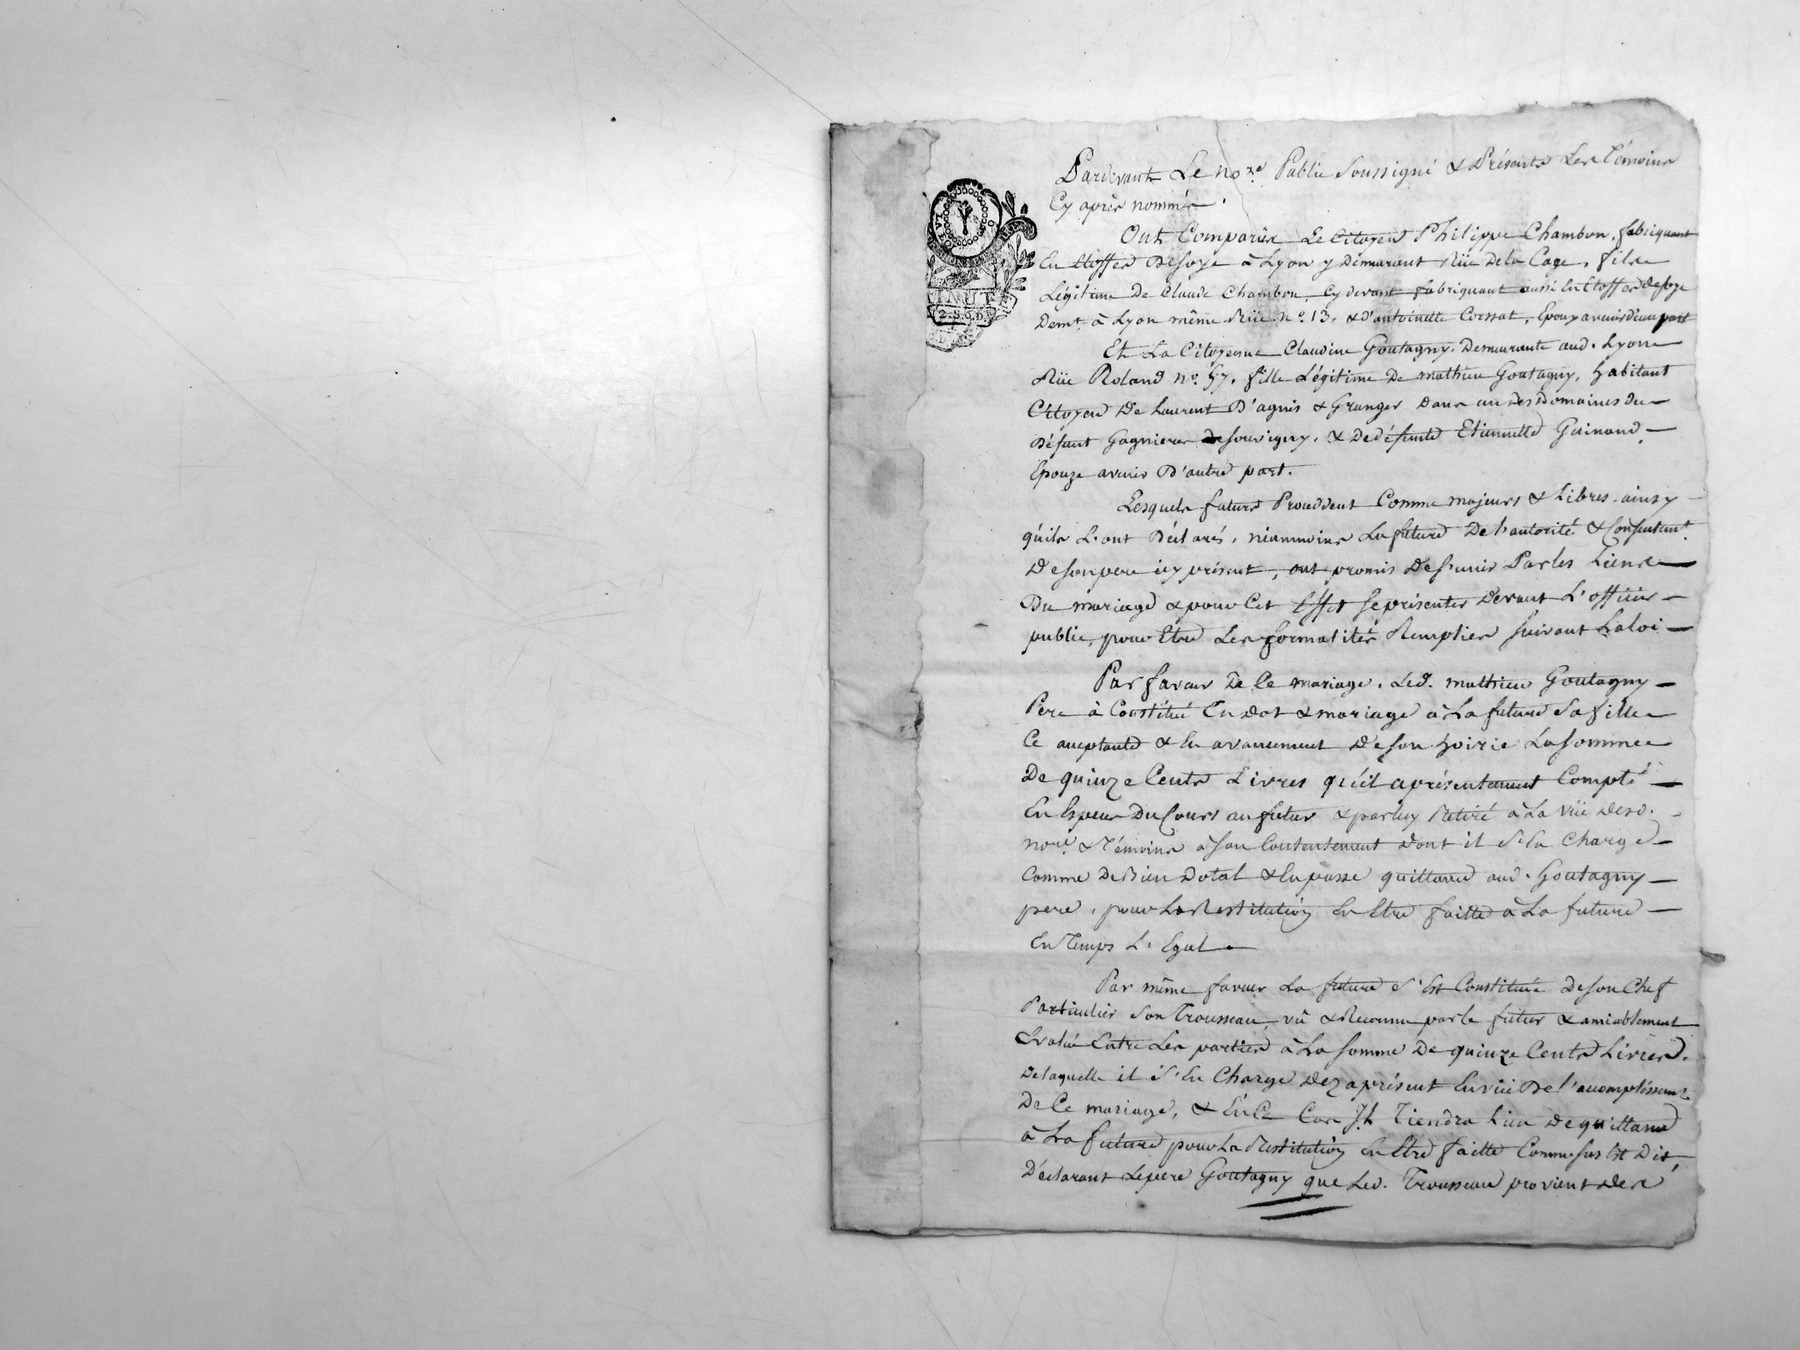 LA LOI
MINUT
2.S.6D.
Pardevant Le no.re Public Soussigné & Présents Les Témoins
Cy après nommés.
Ont Comparus Le Citoyen Philippe Chambon, fabriquant
En Etoffes De Soye à Lyon y Démurant Rüe De la Cage, fils
Légitime De Claude Chambon, Cy devant fabriquant aussi En Etoffes de soye
Demt. à Lyon même Rüe n.o 13. & d'antoinette Corssat, Epoux avenir d'une part
Et La Citoyenne Claudine Goutagny. Demeurante aud. Lyon
Rüe Roland n.o 57. fille Légitime De mathieu Goutagny, habitant
Citoyen De Laurent D'agnis & Granger dans un des Domaines du
Défunt Gagnieres de Souvigny. & De défunte Etiennette Guinand
Epouze avenir D'autre part.
Lesquels futurs Procèdent Comme majeurs & Libres. ainsy
qu'ils L'ont Déclarés, néanmoins La future De l'autorité & Consentemt.
De son pere icy présent, ont promis De s'unir Par les Liens
Du mariage & pour Cet Effet se présenter devant L'officier
public, pour Etre Les formalités Remplies suivant La loi
Par faveur De Ce mariage. Led. mathieu Goutagny
Pere à Constitué En dot & mariage à La future Sa fille
Ce aceptante & En avancement De son hoirie La somme
De quinze Cents Livres qu'il a présentement Compté
En Especes Du Cours au futur & par luy Retiré à La vüe desd.
nore. & Témoins à son Contentement dont il S'en Charge
Comme De Bien Dotal & En passe quittance aud. Goutagny
pere, pour La Restitution En Etre faitte à La future
En Temps L'Egal
Par même faveur La future S'Est Constituée De son Chef
Particulier Son Trousseau, vû & Reconnu par le futur & amiablement
Evalué Entre Les parties à La somme De quinze Cents Livres.
De laquelle il S'En Charge Dez aprésent En vüe De l'accomplissemt.
De Ce mariage, & En Ce Cas Il Tiendra Lieu De quittance
à La future pour La Restitution En Etre faitte Comme sus Est Dit,
Déclarant Le pere Goutagny que Led. Trousseau provient des